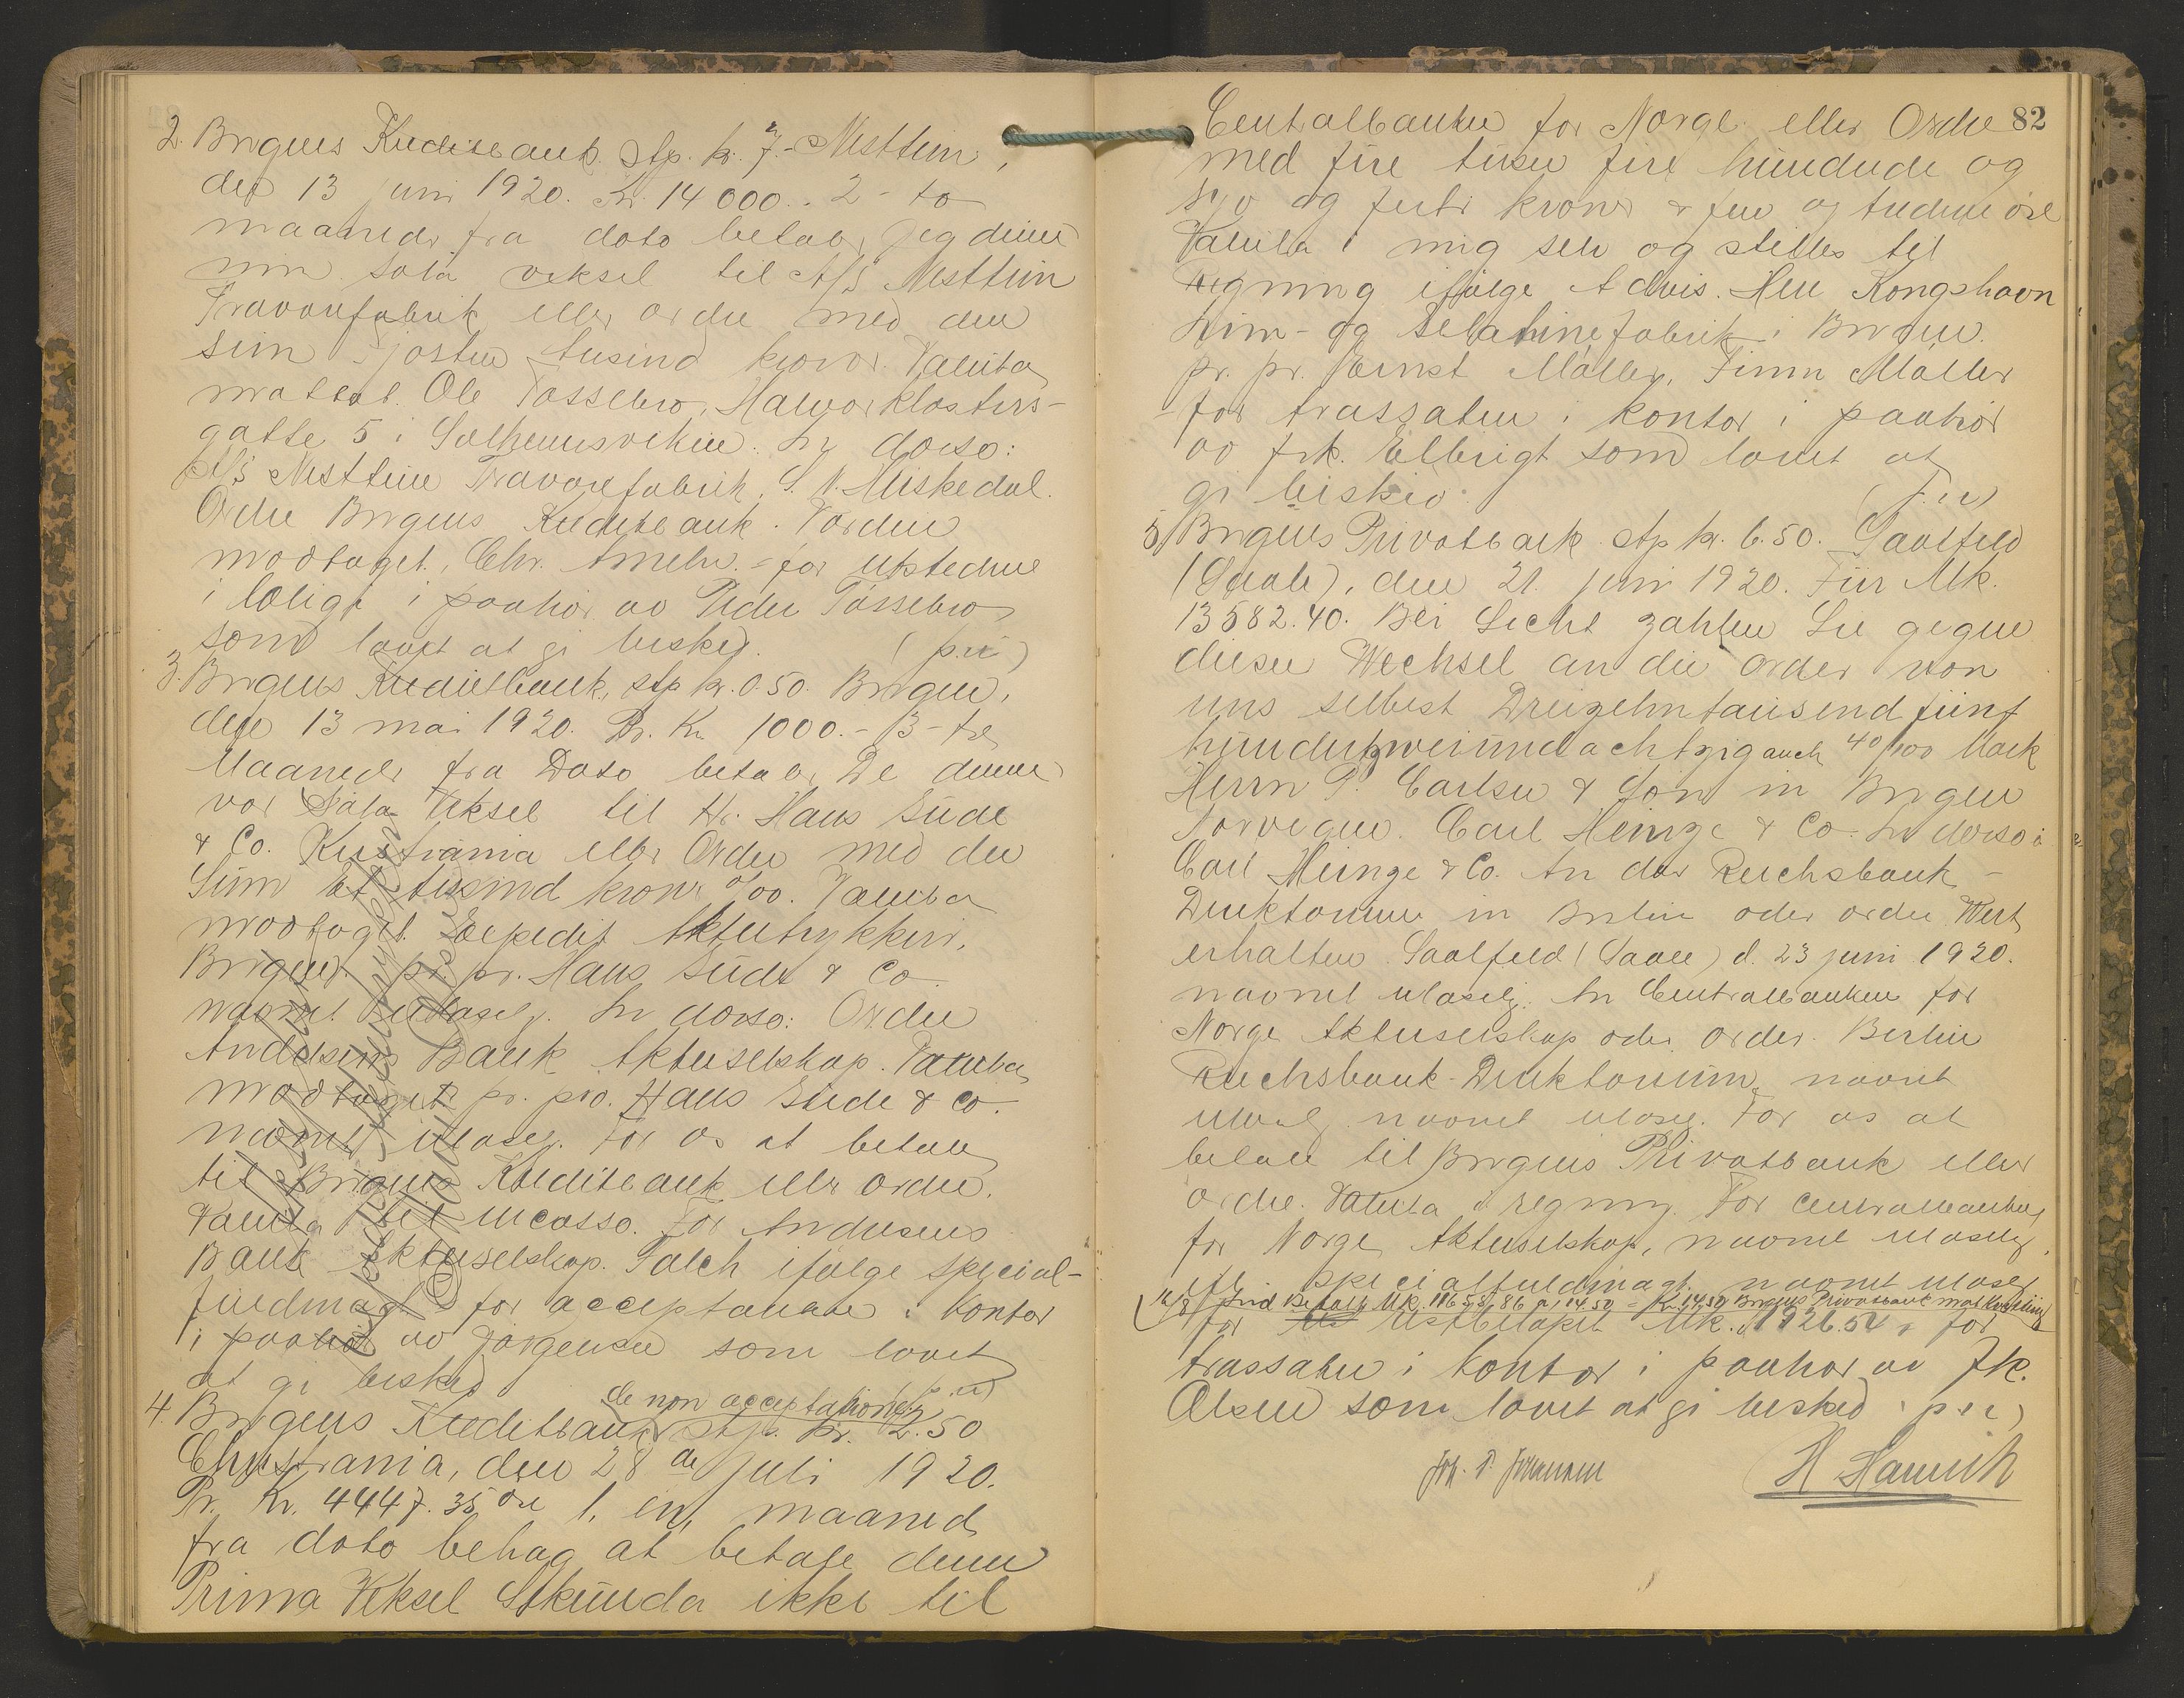 2. Bergens Kreditbank. stp. kr. 7.- Nesttun,
den 13 juni 1920. Kr. 14 000.. 2 - to
maaneder fra dato betaler jeg denne
min sola veksel til A/S Nesttun
Trævarefabrik eller ordre med den
sum fjorten tusind kroner. Valuta
mottat. Ole Tøssebro, Halvor Klosters-
gatte 5 i Solheimsviken. In dorso:
A/S Nesttun Trævarefabrik, S. N. Miskedal.
Ordre Bergens Kreditbank. Værdien
modtaget. Chr. Ameln. - for utstederne
i bolig i paahør av Peder Tøssebro
som lovet at gi besked. (p.u)
3. Bergens Kreditbank, stp kr. 0.50. Bergen,
den 13 mai 1920. Pr. Kr. 1000.- 3 - tre
Maaneder fra Dato betaler De denne
vor Sola Veksel til Hr. Hans Sude
& Co. Kristiania eller Ordre med den
Sum Et tusind kroner o/oo. Valuta
modtaget. Expedit Aktietrykkeri,
Bergen. pr. pr. Hans Sude & Co.
navnet ulæselig. In dorso: Ordre
Andresens Bank Aktieselskap. Valuta
modtaget pr. pro. Hans Sude & Co.
navnet ulæselig. For os at betale
til Bergens Kreditbank eller ordre.
Valuta til incasso. For Andresens
Bank Aktieselskap. Falch ifølge special-
fuldmagt - for acceptanten i kontor
i paahør av Jørgensen som lovet
at gi besked (p.u)
de non acceptatione
4. Bergens Kreditbank stp. kr. 2.50
Christiania, den 28 de Juli 1920.
Pr. Kr. 4447.35 øre 1, en, maaned
fra dato behag at betale denne
Prima Veksel Sekunda ikke til
82
Centralbanken for Norge eller Ordre
med fire tusen fire hundrede og
syv og førti kroner & fem og tredive øre
Valuta i mig selv og stilles til
Regning ifølge Advis. Herr Kongshavn
Lim- og Gelatinefabrik i Bergen.
pr. pr. Ernst Møller, Finn Møller
- for trassaten i kontor i paahør
av frk. Ellerigt som lovet at
gi beskeo. (p.u)
5, Bergens Privatbank stp kr. 6.50. Saalfeld
(Saale), den 21. juni 1920. Für Mk.
13582.40. Bei Sicht zahlen Sie gegen
diesen Wechsel an die Order von
uns selbst Dreizehntausend fünf
hundertzweiundachtzig auch 40/100 Mark
Herrn P. Carlsen & Søn in Bergen
Norvegen. Carl Heinze & Co. In dorso:
Carl Heinze & Co. An das Reichsbank -
Direktorium in Berlin oder ordre Wert
erhalten. Saalfeld (Saale) d. 23 juni 1920.
navnet ulæselig. An Centralbanken for
Norge Aktieselskap oder order. Berlin
Reichsbank-Direktorium, navnet
ulæselig navnet ulæselig. For os at
betale til Bergens Privatbank eller
ordre. Valuta i regning. For Centralbanken
for Norge, Aktieselskap, navnet ulæselig,
ifl. specialfuldmagt, navnet ulæselig
for Restbeløpet Mk. 1926.54, for
trassaten i kontor i paahør av Frk.
Olsen som lovet at gi besked (p.u)
H Hamich